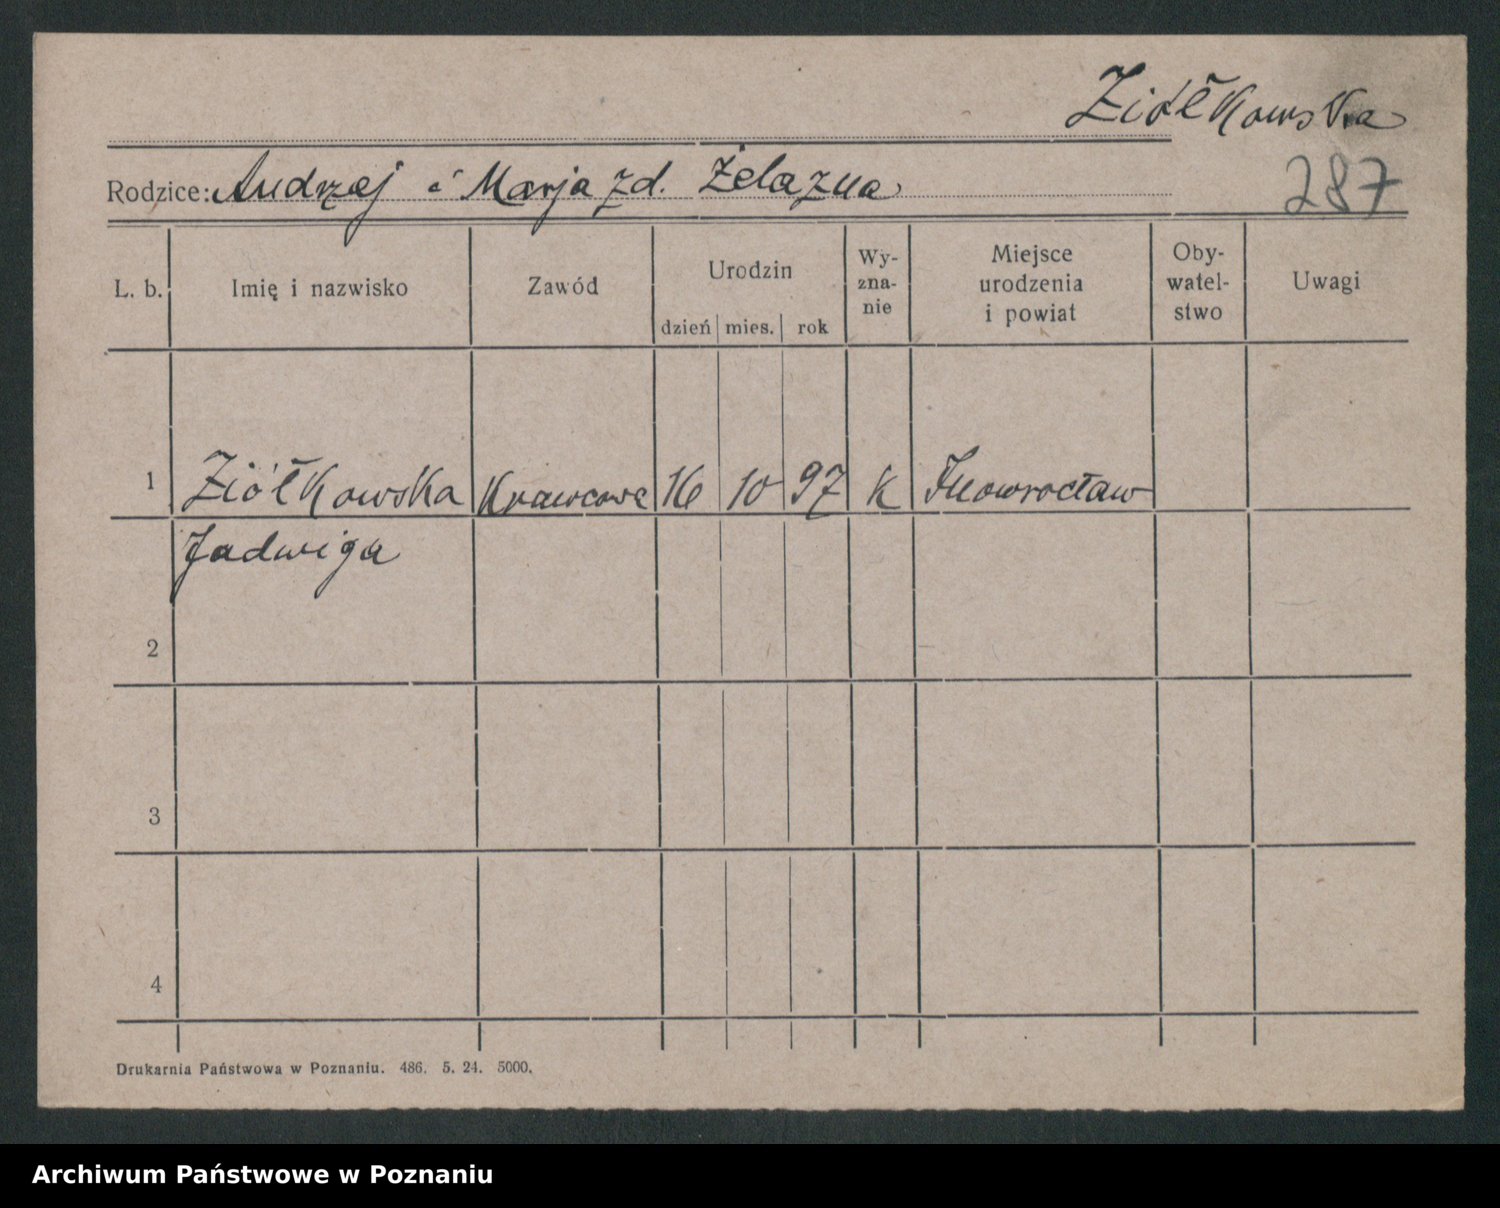 Ziółkowska
Rodzice: Andrzej i Marja z d. Żelazna
287
L. b. Imię i nazwisko Zawód Urodzin dzień mies. rok Wy-zna-nie Miejsce urodzenia i powiat Oby-watel-stwo Uwagi
1 Ziółkowska Krawcowa 16 10 97 k Inowrocław
Jadwiga
2
3
4
Drukarnia Państwowa w Poznaniu. 486. 5. 24. 5000.
Archiwum Państwowe w Poznaniu